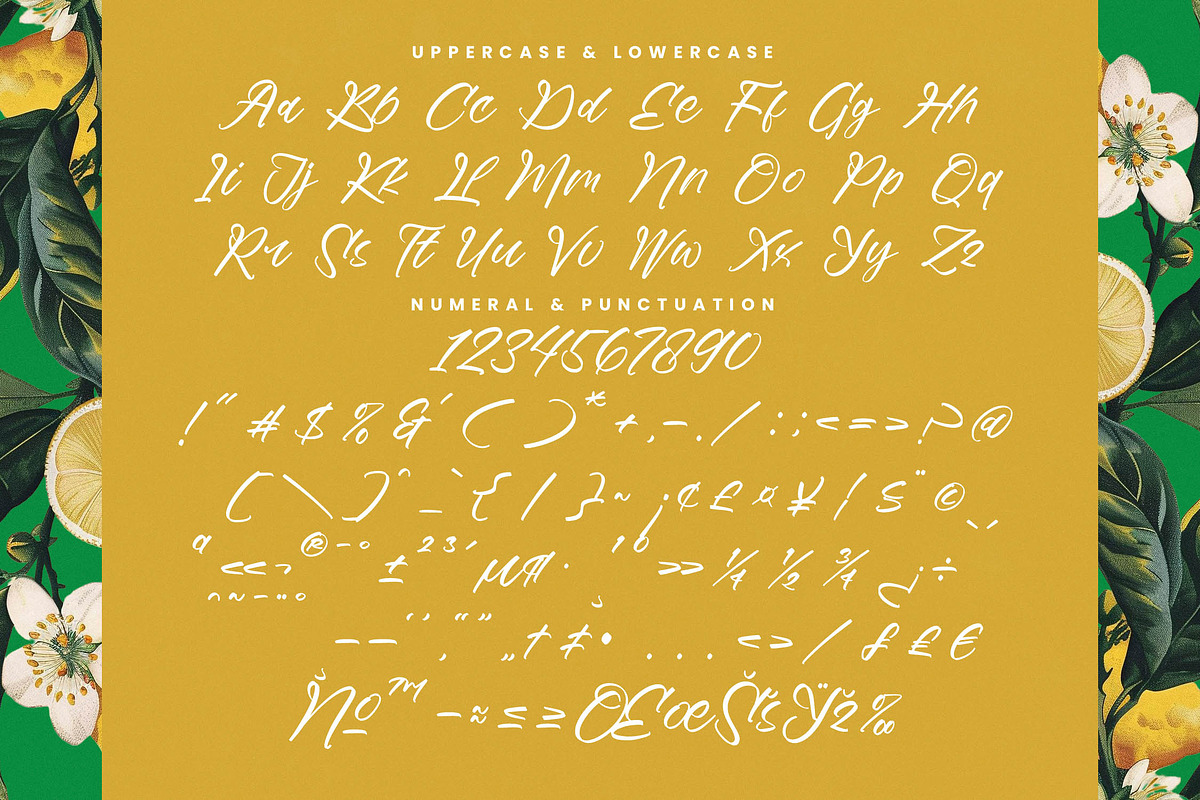 UPPERCASE & LOWERCASE
Aa Bb Cc Dd Ee Ff Gg Hh
Ii Jj Kk Ll Mm Nn Oo Pp Qq
Rr Ss Tt Uu Vv Ww Xx Yy Zz
NUMERAL & PUNCTUATION
1234567890
!" # $ % & ' ( ) * + , - . / : ; < = > ? @
[ \ ] ^ _ ` { | } ~ ¡ ¢ £ ¤ ¥ ¦ § ¨ ©
ª « ¬ ® ¯ ° ± ² ³ ´ µ ¶ · ¹ º » ¼ ½ ¾ ¿ ÷
– — ‘ ’ ‚ “ ” „ † ‡ • . . . < > / £ €
№ ™ − ≈ ≤ ≥ Œ œ Š š Ÿ ž ‰